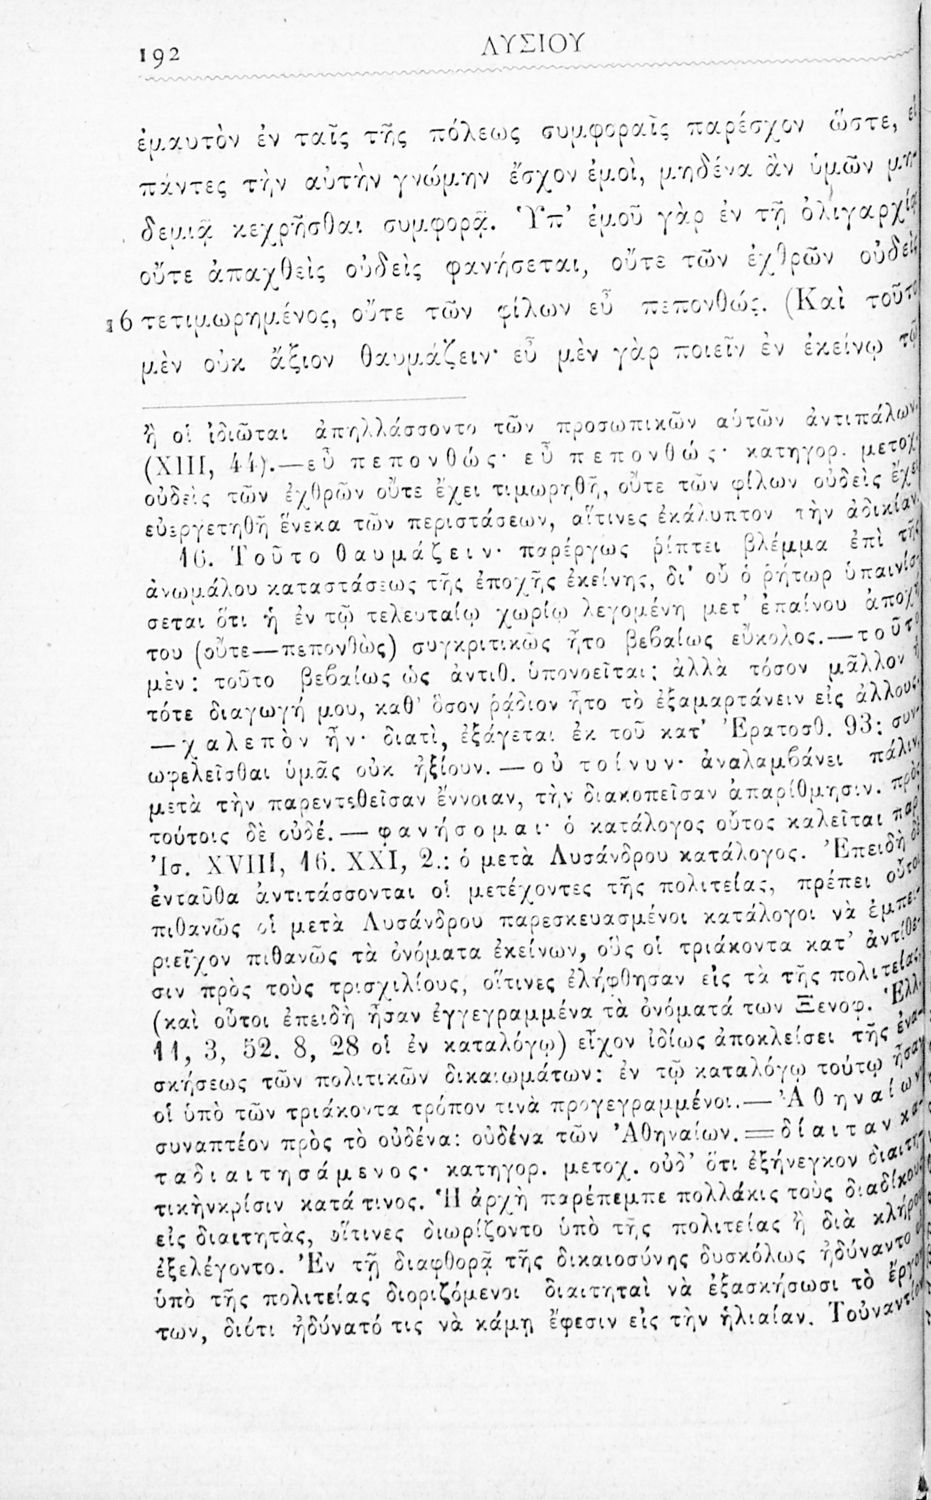 192
ΛΥΣΙΟΥ
ἐμαυτὸν ἐν ταῖς τῆς πόλεως συμφοραῖς παρέσχον ὥστε, εἰ
πάντες τὴν αὐτὴν γνώμην ἔσχον ἐμοὶ, μηδένα ἂν ὑμῶν μη-
δεμιᾷ κεχρῆσθαι συμφορᾷ. Ὑπ’ ἐμοῦ γὰρ ἐν τῇ ὀλιγαρχίᾳ
οὔτε ἀπαχθεὶς οὐδεὶς φανήσεται, οὔτε τῶν ἐχθρῶν οὐδεὶς
16 τετιμωρημένος, οὔτε τῶν φίλων εὖ πεπονθώς. (Καὶ τοῦτο
μὲν οὐκ ἄξιον θαυμάζειν· εὖ μὲν γὰρ ποιεῖν ἐν ἐκείνῳ τῷ
ἢ οἱ ἰδιῶται ἀπηλλάσσοντο τῶν προσωπικῶν αὑτῶν ἀντιπάλων
(XIII, 44).—εὖ πεπονθώς· εὖ πεπονθώς· κατηγορ. μετοχ.
οὐδεὶς τῶν ἐχθρῶν οὔτε ἔχει τιμωρηθῆ, οὔτε τῶν φίλων οὐδεὶς ἔχει
εὐεργετηθῆ ἕνεκα τῶν περιστάσεων, αἵτινες ἐκάλυπτον τὴν ἀδικίαν.
16. Τοῦτο θαυμάζειν· παρέργως ῥίπτει βλέμμα ἐπὶ τῆς
ἀνωμάλου καταστάσεως τῆς ἐποχῆς ἐκείνης, δι’ οὗ ὁ ῥήτωρ ὑπαινίσ-
σεται ὅτι ἡ ἐν τῷ τελευταίῳ χωρίῳ λεγομένη μετ’ ἐπαίνου ἀποχή
του (οὔτε—πεπονθὼς) συγκριτικῶς ἦτο βεβαίως εὔκολος.—τοῦτο
μὲν: τοῦτο βεβαίως ὡς ἀντιθ. ὑπονοεῖται: ἀλλὰ τόσον μᾶλλον ἡ
τότε διαγωγή μου, καθ’ ὅσον ῥᾴδιον ἦτο τὸ ἐξαμαρτάνειν εἰς ἄλλους.
—χαλεπὸν ἦν· διατὶ, ἐξάγεται ἐκ τοῦ κατ’ Ἐρατοσθ. 93: συν-
ωφελεῖσθαι ὑμᾶς οὐκ ἠξίουν.—οὐ τοίνυν· ἀναλαμβάνει πάλιν
μετὰ τὴν παρεντεθεῖσαν ἔννοιαν, τὴν διακοπεῖσαν ἀπαρίθμησιν. πρὸς
τούτοις δὲ οὐδέ.—φανήσομαι· ὁ κατάλογος οὗτος καλεῖται παρ’
Ἰσ. XVIII, 16. XXI, 2.: ὁ μετὰ Λυσάνδρου κατάλογος. Ἐπειδὴ δὲ
ἐνταῦθα ἀντιτάσσονται οἱ μετέχοντες τῆς πολιτείας, πρέπει οὗτοι
πιθανῶς οἱ μετὰ Λυσάνδρου παρεσκευασμένοι κατάλογοι νὰ ἐμπε-
ριεῖχον πιθανῶς τὰ ὀνόματα ἐκείνων, οὓς οἱ τριάκοντα κατ’ ἀντίθε-
σιν πρὸς τοὺς τρισχιλίους, οἵτινες ἐλήφθησαν εἰς τὰ τῆς πολιτείας
(καὶ οὗτοι ἐπειδὴ ἦσαν ἐγγεγραμμένα τὰ ὀνόματά των Ξενοφ. Ἑλλ.
11, 3, 52. 8, 28 οἱ ἐν καταλόγῳ) εἶχον ἰδίως ἀποκλείσει τῆς ἐνα-
σκήσεως τῶν πολιτικῶν δικαιωμάτων: ἐν τῷ καταλόγῳ τούτῳ ἦσαν
οἱ ὑπὸ τῶν τριάκοντα τρόπον τινὰ προγεγραμμένοι.—Ἀθηναίων
συναπτέον πρὸς τὸ οὐδένα: οὐδένα τῶν Ἀθηναίων.=δίαιταν κα-
ταδιαιτησάμενος· κατηγορ. μετοχ. οὐδ’ ὅτι ἐξήνεγκον διαιτη-
τικὴνκρίσιν κατά τινος. Ἡ ἀρχὴ παρέπεμπε πολλάκις τοὺς διαδίκους
εἰς διαιτητὰς, οἵτινες διωρίζοντο ὑπὸ τῆς πολιτείας ἢ διὰ κλήρου
ἐξελέγοντο. Ἐν τῇ διαφθορᾷ τῆς δικαιοσύνης δυσκόλως ἠδύναντο οἱ
ὑπὸ τῆς πολιτείας διοριζόμενοι διαιτηταὶ νὰ ἐξασκήσωσι τὸ ἔργον
των, διότι ἠδύνατό τις νὰ κάμῃ ἔφεσιν εἰς τὴν ἡλιαίαν. Τοὐναντίον